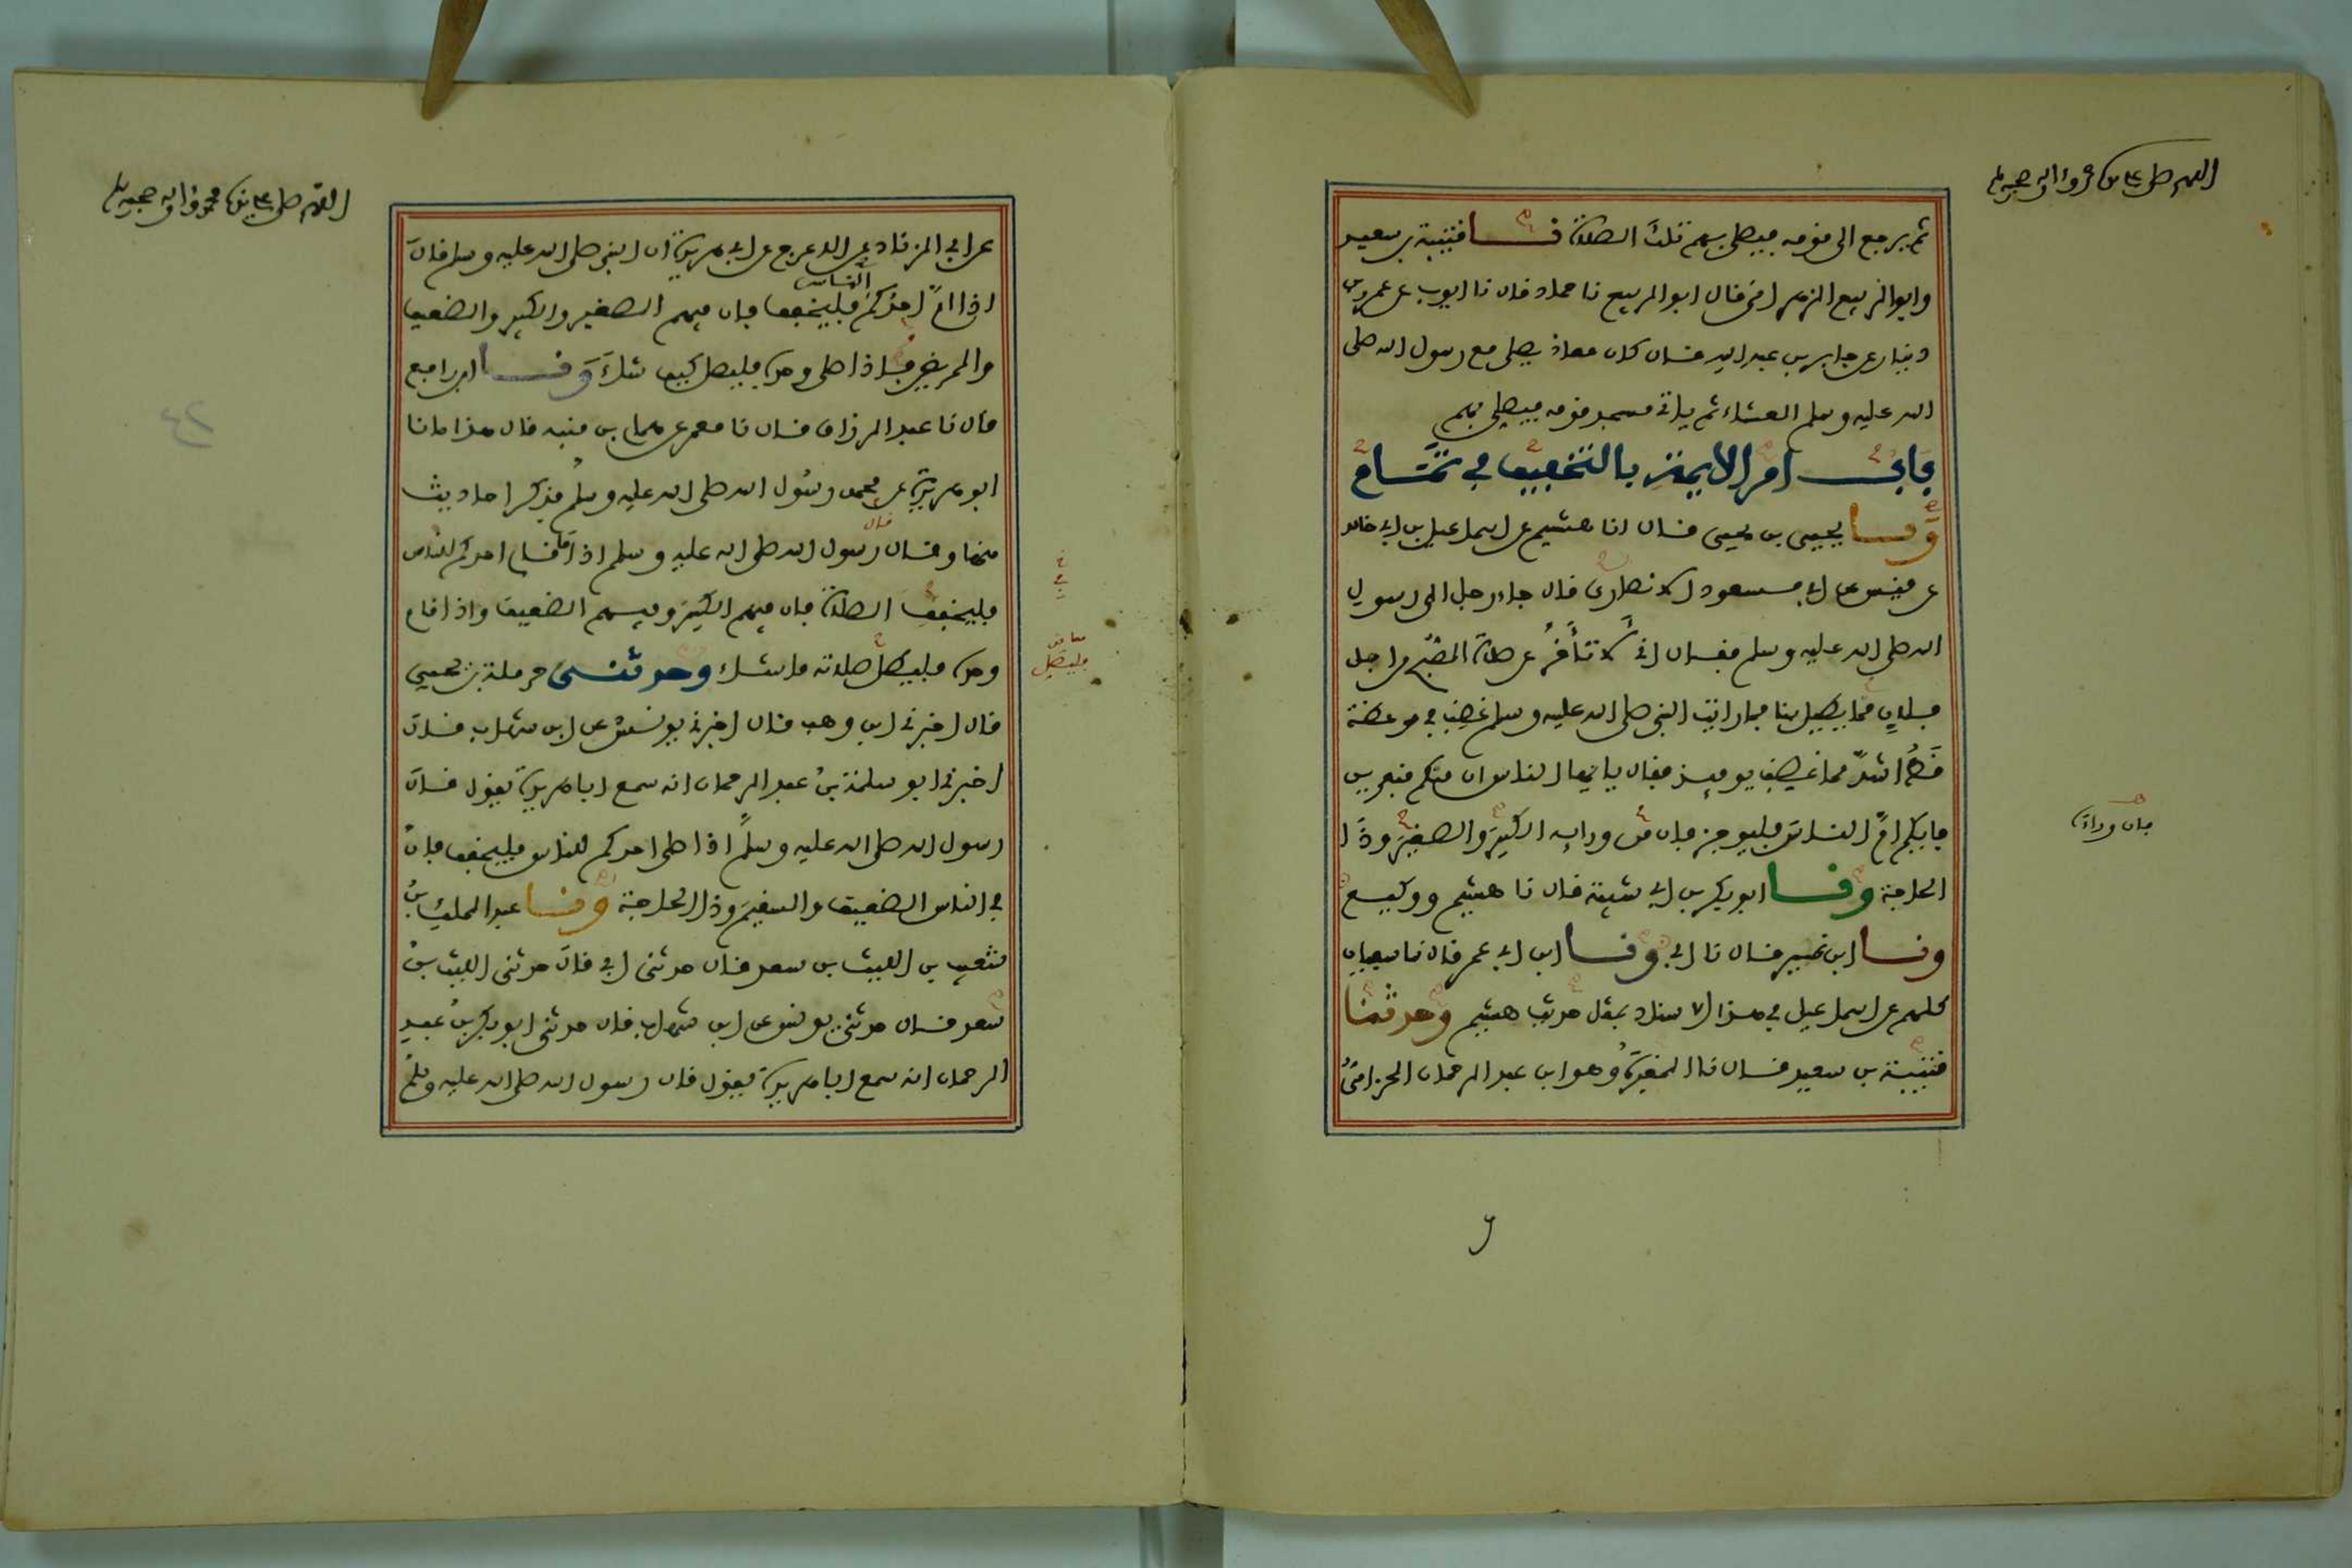 اللهم صل على سيدنا محمد وآله وصحبه وسلم
ثم يرجع الى قومه فيصلى بهم تلك الصلاة نا قتيبة بن سعيد
وابو الربيع الزهرانى قال ابو الربيع نا حماد قال نا ايوب عن عمرو بن
دينار عن جابر بن عبد الله قال كان معاذ يصلى مع رسول الله صلى
الله عليه وسلم العشاء ثم ياتى مسجد قومه فيصلى بهم
باب امر الايمة بالتخفيف في تمام
ونا يحيى بن يحيى قال انا هشيم عن اسماعيل بن ابي خالد
عن قيس عن ابي مسعود الانصارى قال جاء رجل الى رسول
الله صلى الله عليه وسلم فقال انى لا تأخر عن صلاة الصبح من اجل
فلان مما يطيل بنا فما رايت النبي صلى الله عليه وسلم غضب في موعظة
قط اشد مما غضب يوميذ فقال يا ايها الناس ان منكم منفرين
فايكم ام الناس فليوجز فان من ورايه الكبير والصغير وذا
الحاجة ونا ابو بكر بن ابي شيبة قال نا هشيم ووكيع
ونا ابن نمير قال نا ابي ونا ابن ابي عمر قال نا سفيان
كلهم عن اسماعيل في هذا الاسناد بمثل حديث هشيم وحدثنا
قتيبة بن سعيد قال نا المغيرة وهو ابن عبد الرحمان الحزامى
فان وراءه
اللهم صل على سيدنا محمد وآله وصحبه وسلم
عن ابي الزناد عن الاعرج عن ابي هريرة ان النبي صلى الله عليه وسلم قال
اذا ام احدكم الناس فليخفف فان فيهم الصغير والكبير والضعيف
والمريض فاذا صلى وحده فليصل كيف شاء ونا ابن رافع
قال نا عبد الرزاق قال نا معمر عن همام بن منبه قال هذا ما نا
ابو هريرة عن محمد رسول الله صلى الله عليه وسلم فذكر احاديث
منها وقال قال رسول الله صلى الله عليه وسلم اذا ما قام احدكم للناس
فليخفف الصلاة فان فيهم الكبير وفيهم الضعيف واذا قام
وحده فليطل صلاته ما شاء وحدثنى حرملة بن يحيى
قال اخبرنى ابن وهب قال اخبرنى يونس عن ابن شهاب قال
اخبرنى ابو سلمة بن عبد الرحمان انه سمع ابا هريرة يقول قال
رسول الله صلى الله عليه وسلم اذا صلى احدكم للناس فليخفف فان
في الناس الضعيف والسقيم وذا الحاجة ونا عبد الملك بن
شعيب بن الليث بن سعد قال حدثنى ابي قال حدثنى الليث بن
سعد قال حدثنى يونس عن ابن شهاب قال حدثنى ابو بكر بن عبد
الرحمان انه سمع ابا هريرة يقول قال رسول الله صلى الله عليه وسلم
فليصل